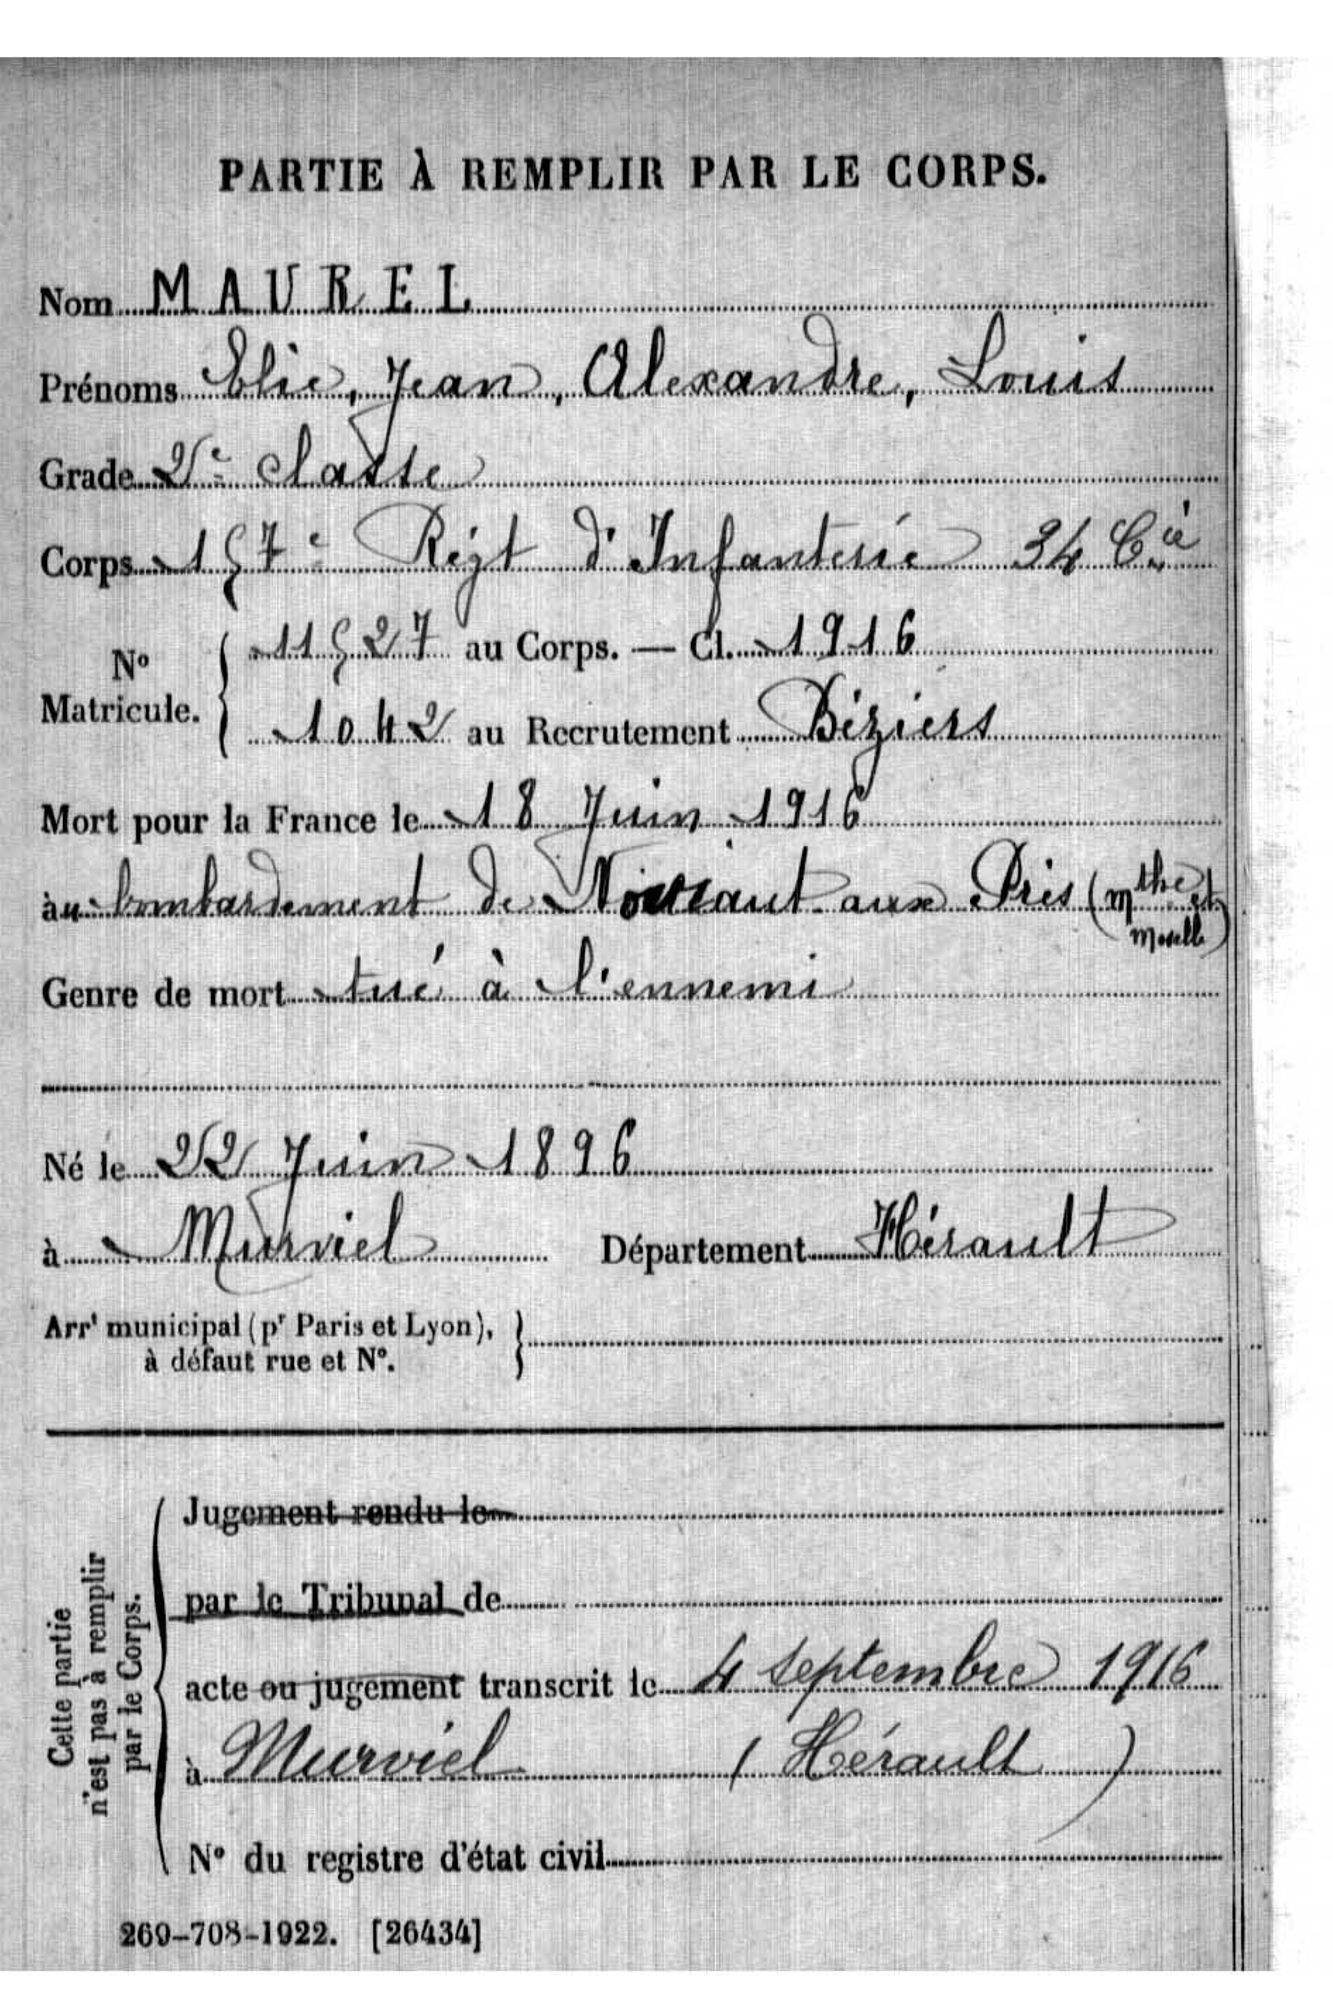 PARTIE À REMPLIR PAR LE CORPS.
Nom MAUREL
Prénoms Elie, Jean, Alexandre, Louis
Grade 2e classe
Corps 157e Régt d'Infanterie 34 Cie
N° Matricule. 11527 au Corps. — Cl. 1916
1042 au Recrutement Béziers
Mort pour la France le 18 Juin 1916
au bombardement de aux Prés (Mthe et
Moselle)
Genre de mort tué à l'ennemi
Né le 22 Juin 1896
à Murviel Département Hérault
Arrt municipal (pr Paris et Lyon),
à défaut rue et N°.
Cette partie
n'est pas à remplir
par le Corps.
Jugement rendu le
par le Tribunal de
acte ou jugement transcrit le 4 septembre 1916
à Murviel (Hérault)
N° du registre d'état civil
269-708-1922. [26434]